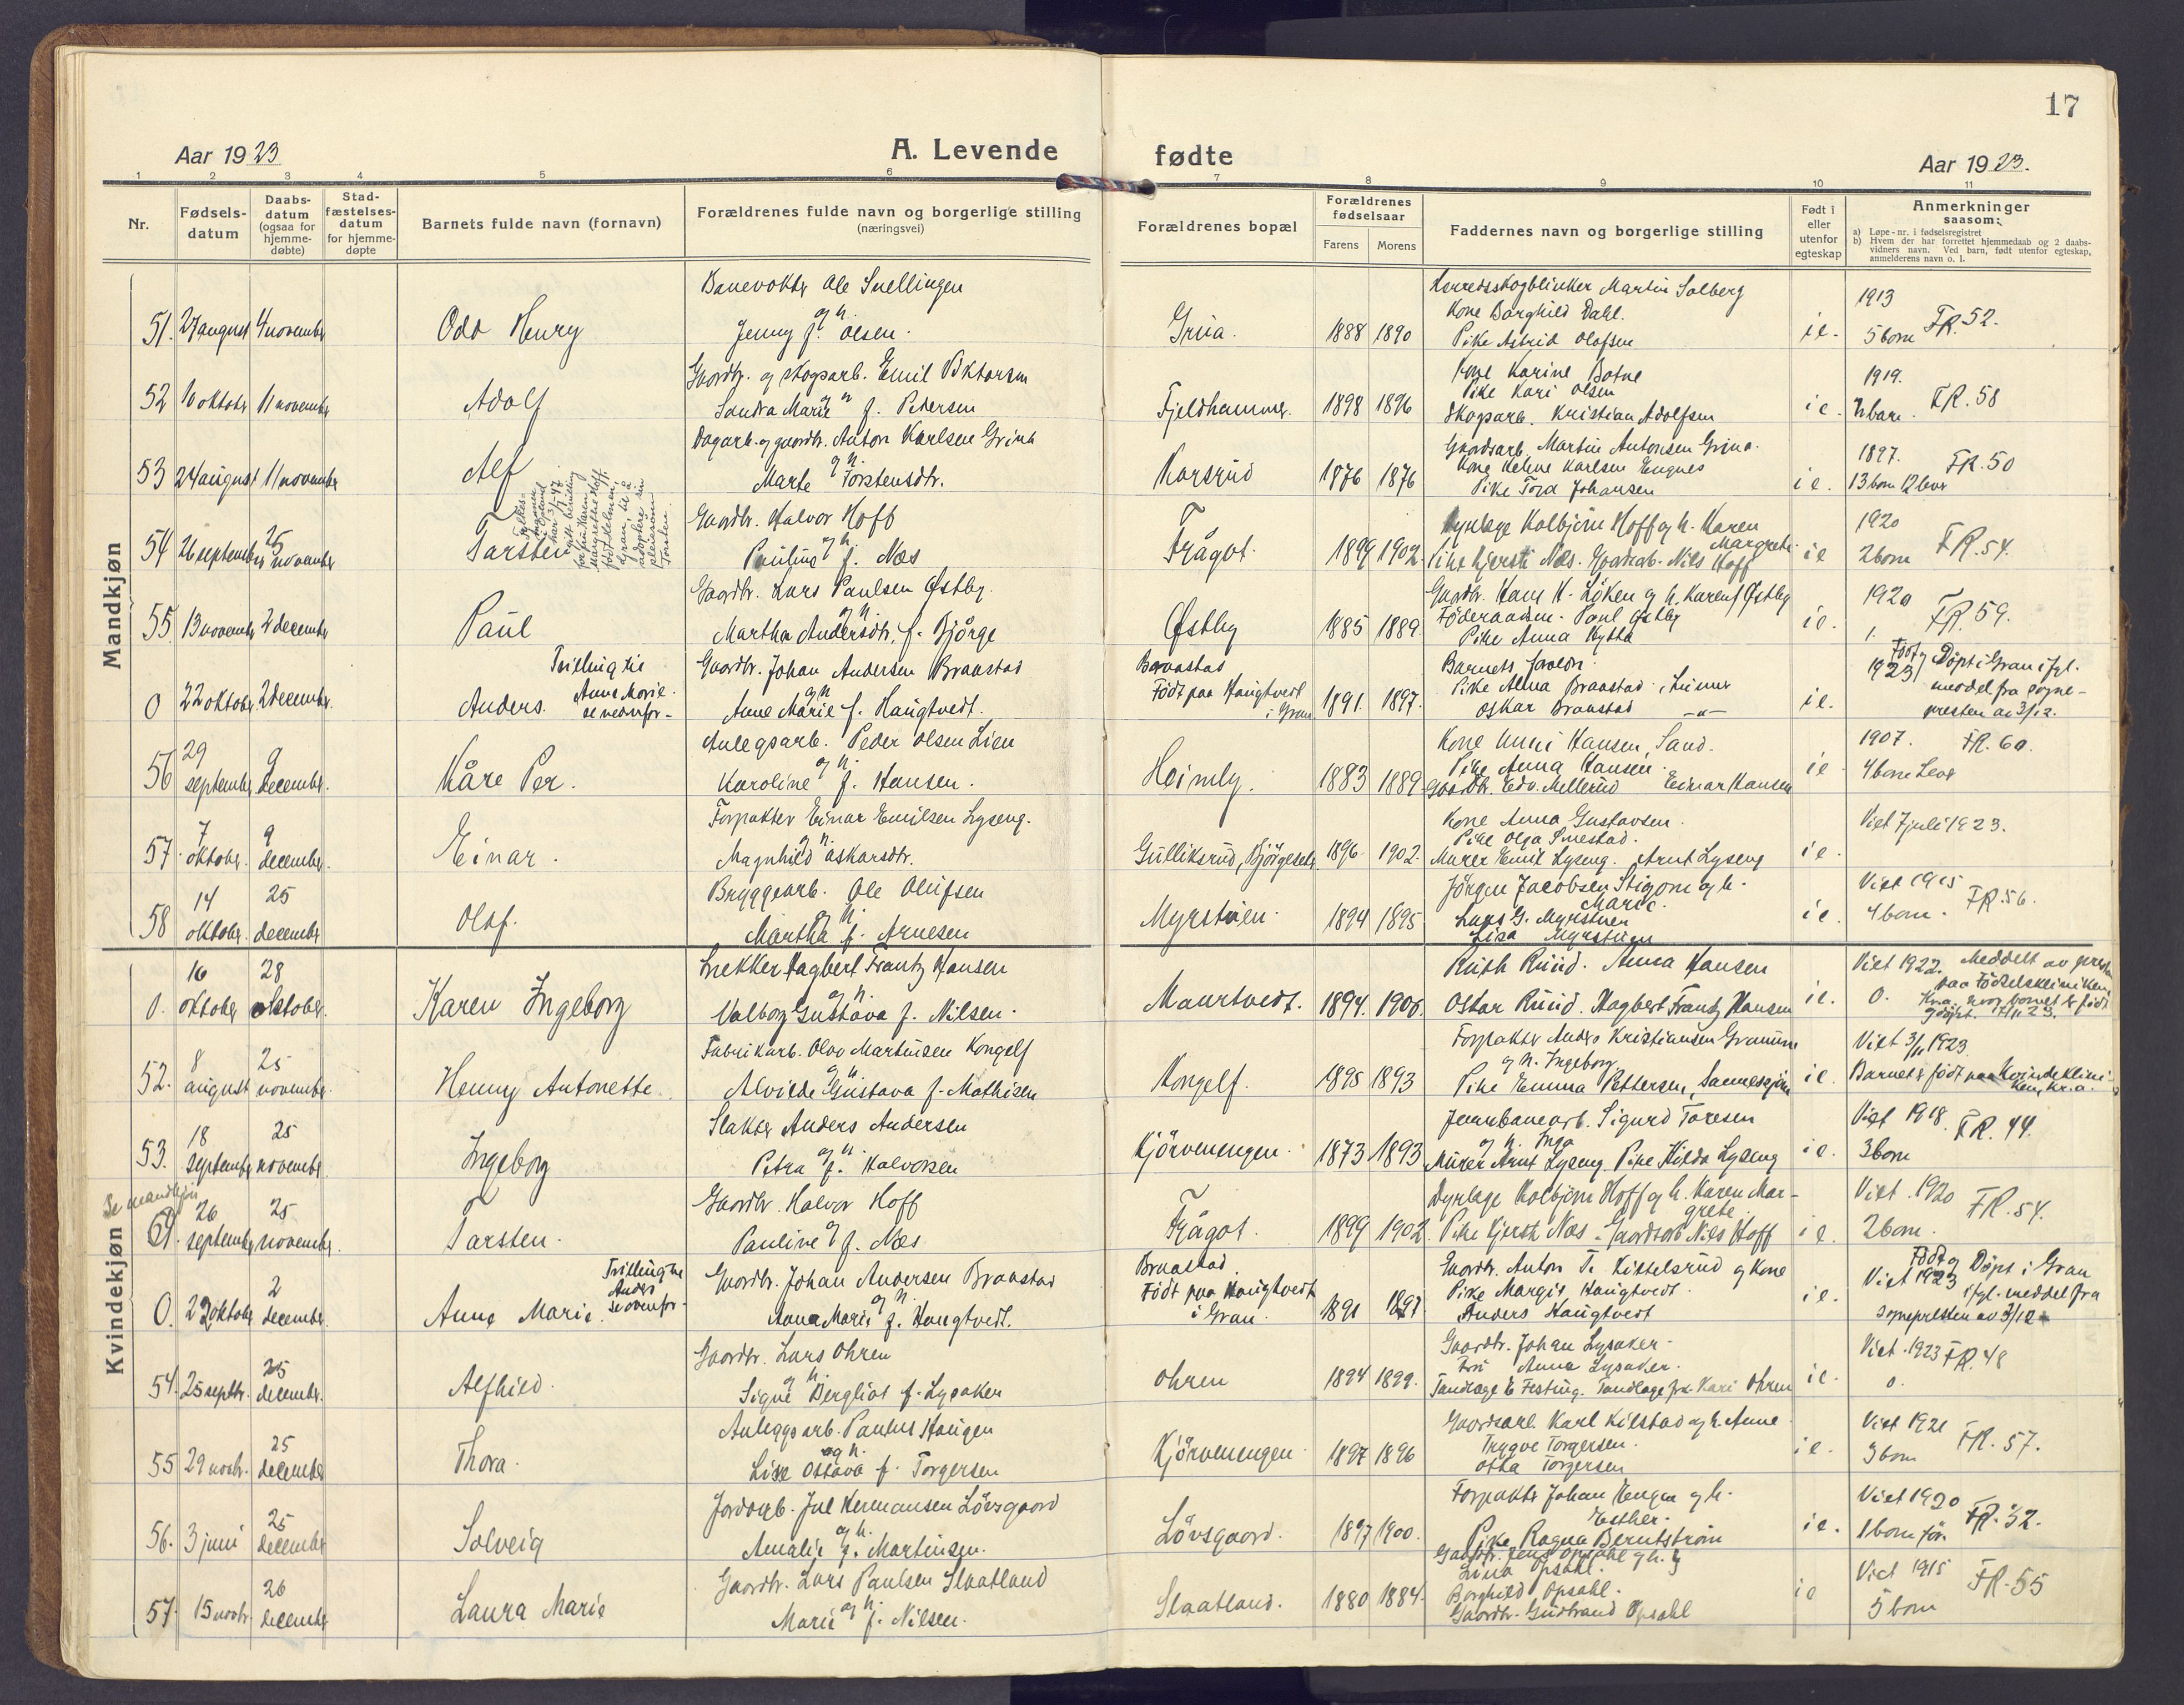 17
Aar 1923
A. Levende
fødte
Aar 1923.
1 2 3 4 5 6 7 8 9 10 11
Nr.
Fødsels-
datum
Daabs-
datum
(ogsaa for
hjemme-
døbte)
Stad-
fæstelses-
datum
for hjemme-
døpte
Barnets fulde navn (fornavn)
Forældrenes fulde navn og borgerlige stilling
(næringsvei)
Forældrenes bopæl
Forældrenes
fødselsaar
Farens
Morens
Faddernes navn og borgerlige stilling
Født i
eller
utenfor
egteskap
Anmerkninger
saasom:
a) Løpe-nr. i fødselsregistret
b) Hvem der har forrettet hjemmedaab og 2 daabs-
vidners navn. Ved barn, født utenfor egteskap,
anmelderens navn o. l.
Mandkjøn
Banevokter Ole Snellingen
og h.
51. 27 august 4 november Odd Henry Jenny f. Olsen. Grua. 1888 1890
Herredsskogblinker Martin Solberg
Kone Borghild Dahl.
Pike Astrid Olofsen
i e. 1913
5 born FR. 52.
Gaardbr. og skogsarb. Emil Viktorsen
og h.
52 10 oktober 11 november Adolf Sandra Marie f. Pedersen Fjeldhammer. 1898 1896
Kone Karine Botne
Pike Kari Olsen
Skogsarb. Kristian Adolfsen
i e. 1919.
2 barn. FR. 58
Dagarb. og gaardbr. Anton Karlsen Grina
og h.
53 24 august 11 november Alf Marte Torstensdtr. Karsrud 1876 1876
Gaardsarb. Martin Antonsen Grina.
Kone Helene Karlsen Engnes
Pike Tora Johansen
i e. 1897.
13 born 12 lever FR. 50
Gaardbr. Halvor Hoff
og h.
54 26 september 25 november Tarsten Pauline f. Næs Trågot. 1899 1902.
Dyrlæge Kolbjörn Hoff og h. Karen
Margrete.
Pike Kjersti Næs. Gaardsarb. Nils Hoff
i e 1920
2 born FR. 54.
Gaardbr. Lars Paulsen Østby
og h.
55. 13 november 2 december Paul Martha Andersdtr. f. Bjørge Østby 1885 1889.
Gaardbr. Hans H. Løken og h. Karen f. Østby
Föderaadsm. Paul Østby
Pike Anna Hytta
i e. 1920
1. FR. 59.
Gaardbr. Johan Andersen Braastad
og h.
0 22 oktober 2 december. Anders.
Tvilling til
Anne Marie.
se nedenfor-
Anne Marie f. Haugtvedt.
Braastad
Født paa Haugtvedt
i Gran 1891. 1897.
Barnets foreldr.
Pike Alma Braastad i Lunner
Oskar Braastad -"-
i e. 1923
Født og Döpt i Gran ifgl.
meddel fra sogne-
presten av 3/12.
Anlegsarb. Peder Olsen Lien
og h.
56 29 september 9 december. Kåre Per. Karoline f. Hansen. Heimly. 1883 1889
Kone Unni Hansen, Sand.
Pike Anna Hansen.
Gaardbr. Edv. Mellerud Einar Hansen
i e 1907. FR. 60.
4 born Lever
Forpakter Einar Emilsen Lyseng.
og h.
57. 7 oktober. 9 december. Einar. Magnhild Oskarsdtr. Gulliksrud, Bjørgeseter 1896. 1902.
Kone Anna Gustavsen.
Pike Olga Smestad.
Murer Emil Lyseng. Arnt Lyseng
i e. Viet 7 juli 1923.
Bryggearb. Ole Olufsen
og h.
58 14 oktober. 25 december Olaf. Martha f. Arnesen Myrstuen. 1894 1895
Jörgen Jacobsen Stigom og h.
Marie.
Lars G. Myrstuen
Lisa Myrstuen
i e. Viet 1915
4 born. FR. 56.
Kvindekjøn
Snekker Hagbert Frantz Hansen
og h.
0. 16 oktober 28 oktober. Karen Ingeborg Valborg Gustava f. Nilsen. Maurtvedt. 1894. 1906.
Ruth Ruud. Anna Hansen
Oskar Ruud. Hagbert Frantz Hansen
i e. Viet 1922. Meddelt av presten
paa Födselskliniken,
0. Kra. hvor barnet er född
og döpt.
Fabrikarb. Olav Martinsen Kongelf
og h.
52. 8 august 25 november. Henny Antonette. Alvilde Gustava f. Mathisen Kongelf. 1895 1893
Forpakter Anders Kristiansen
og h. Ingeborg
Pike Emma Pettersen, Sannessjøen
i e. Viet 3/11 1923
Barnet er född paa Kvindekliniken, Kr.a.
Slakter Anders Andersen
og h.
53. 18 september 25 november. Ingeborg Petra f. Halvorsen Kjörvenengen. 1873 1893
Jernbanearb. Sigurd Toresen
og h. Inga
Murer Arnt Lyseng. Pike Hilda Lyseng
i e. Viet 1918. FR. 44.
3 born
Se mandkjøn
Gaardbr. Halvor Hoff
og h.
54. 26 september 25 november. Tarsten. Pauline f. Næs Trågot. 1899 1902.
Dyrlæge Kolbjörn Hoff og h. Karen Mar-
grete
Pike Kjersti Næs. Gaardsarb Nils Hoff
i e. Viet. 1920 FR. 54.
2 born.
Gaardbr. Johan Andersen Braastad
og h.
0. 22 oktober 2 december. Anne Marie.
Tvilling til
Anders
se ovenfor-
Anna Marie f. Haugtvedt.
Braastad.
Født paa Haugtvedt
i Gran. 1891 1897
Gaardbr. Anton T. Kittelsrud og kone
Pike Margit Haugtvedt.
Anders Haugtvedt
i e. Viet 1923
Födt og Döpt i Gran
ifgl. meddel fra
sognepresten av 3/12
Gaardbr. Lars Ohren
og h.
54. 25 septbr. 25 december. Alfhild. Signe Bergliot f. Lysaker Ohren 1894 1899.
Gaardbr. Johan Lysaker.
Fru Anna Lysaker.
Tandlæge E Festing. Tandlæge frk. Kari Ohren
i e. Viet. 1923 FR. 48
0.
Anleggsarb. Paulus Haugen
og h.
55 29 novbr. 25 december Thora. Lise Ottava f. Torgersen Kjörvenengen. 1897 1896
Gaardsarb. Karl Kilstad og h. Anne
Trygve Torgersen.
Otta Torgersen
i e. Viet 1921
3 born FR. 57.
Jordarb. Jul Hermansen Lövsgaard
og h.
56. 3 juni 25 december Solveig Amalie f. Martinsen. Lövsgaard. 1897 1900.
Forpakter Johan Hengen og h.
Esther.
Pike Ragna Berntström
i e. Viet 1920
1 born för. FR. 32.
Gaardbr. Lars Paulsen Slaatland
og h.
57. 15 novbr. 26 december Laura Marie Marie f. Nilsen. Slaatland. 1880 1884.
Gaardbr. Jens Opsahl og h.
Lina Opsahl.
Borghild Opsahl.
Gaardbr. Gudbrand Opsahl
i e Viet 1915
5 born FR. 55